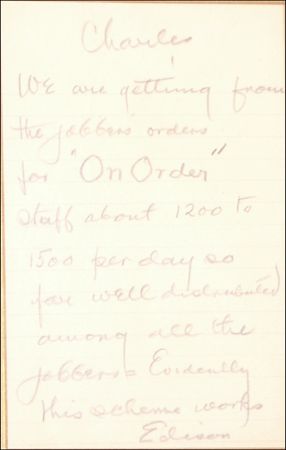 Charles
We are getting from
the jobbers orders
for "On Order"
stuff about 1200 to
1500 per day so
far well distributed
among all the
jobbers = Evidently
this scheme works
Edison